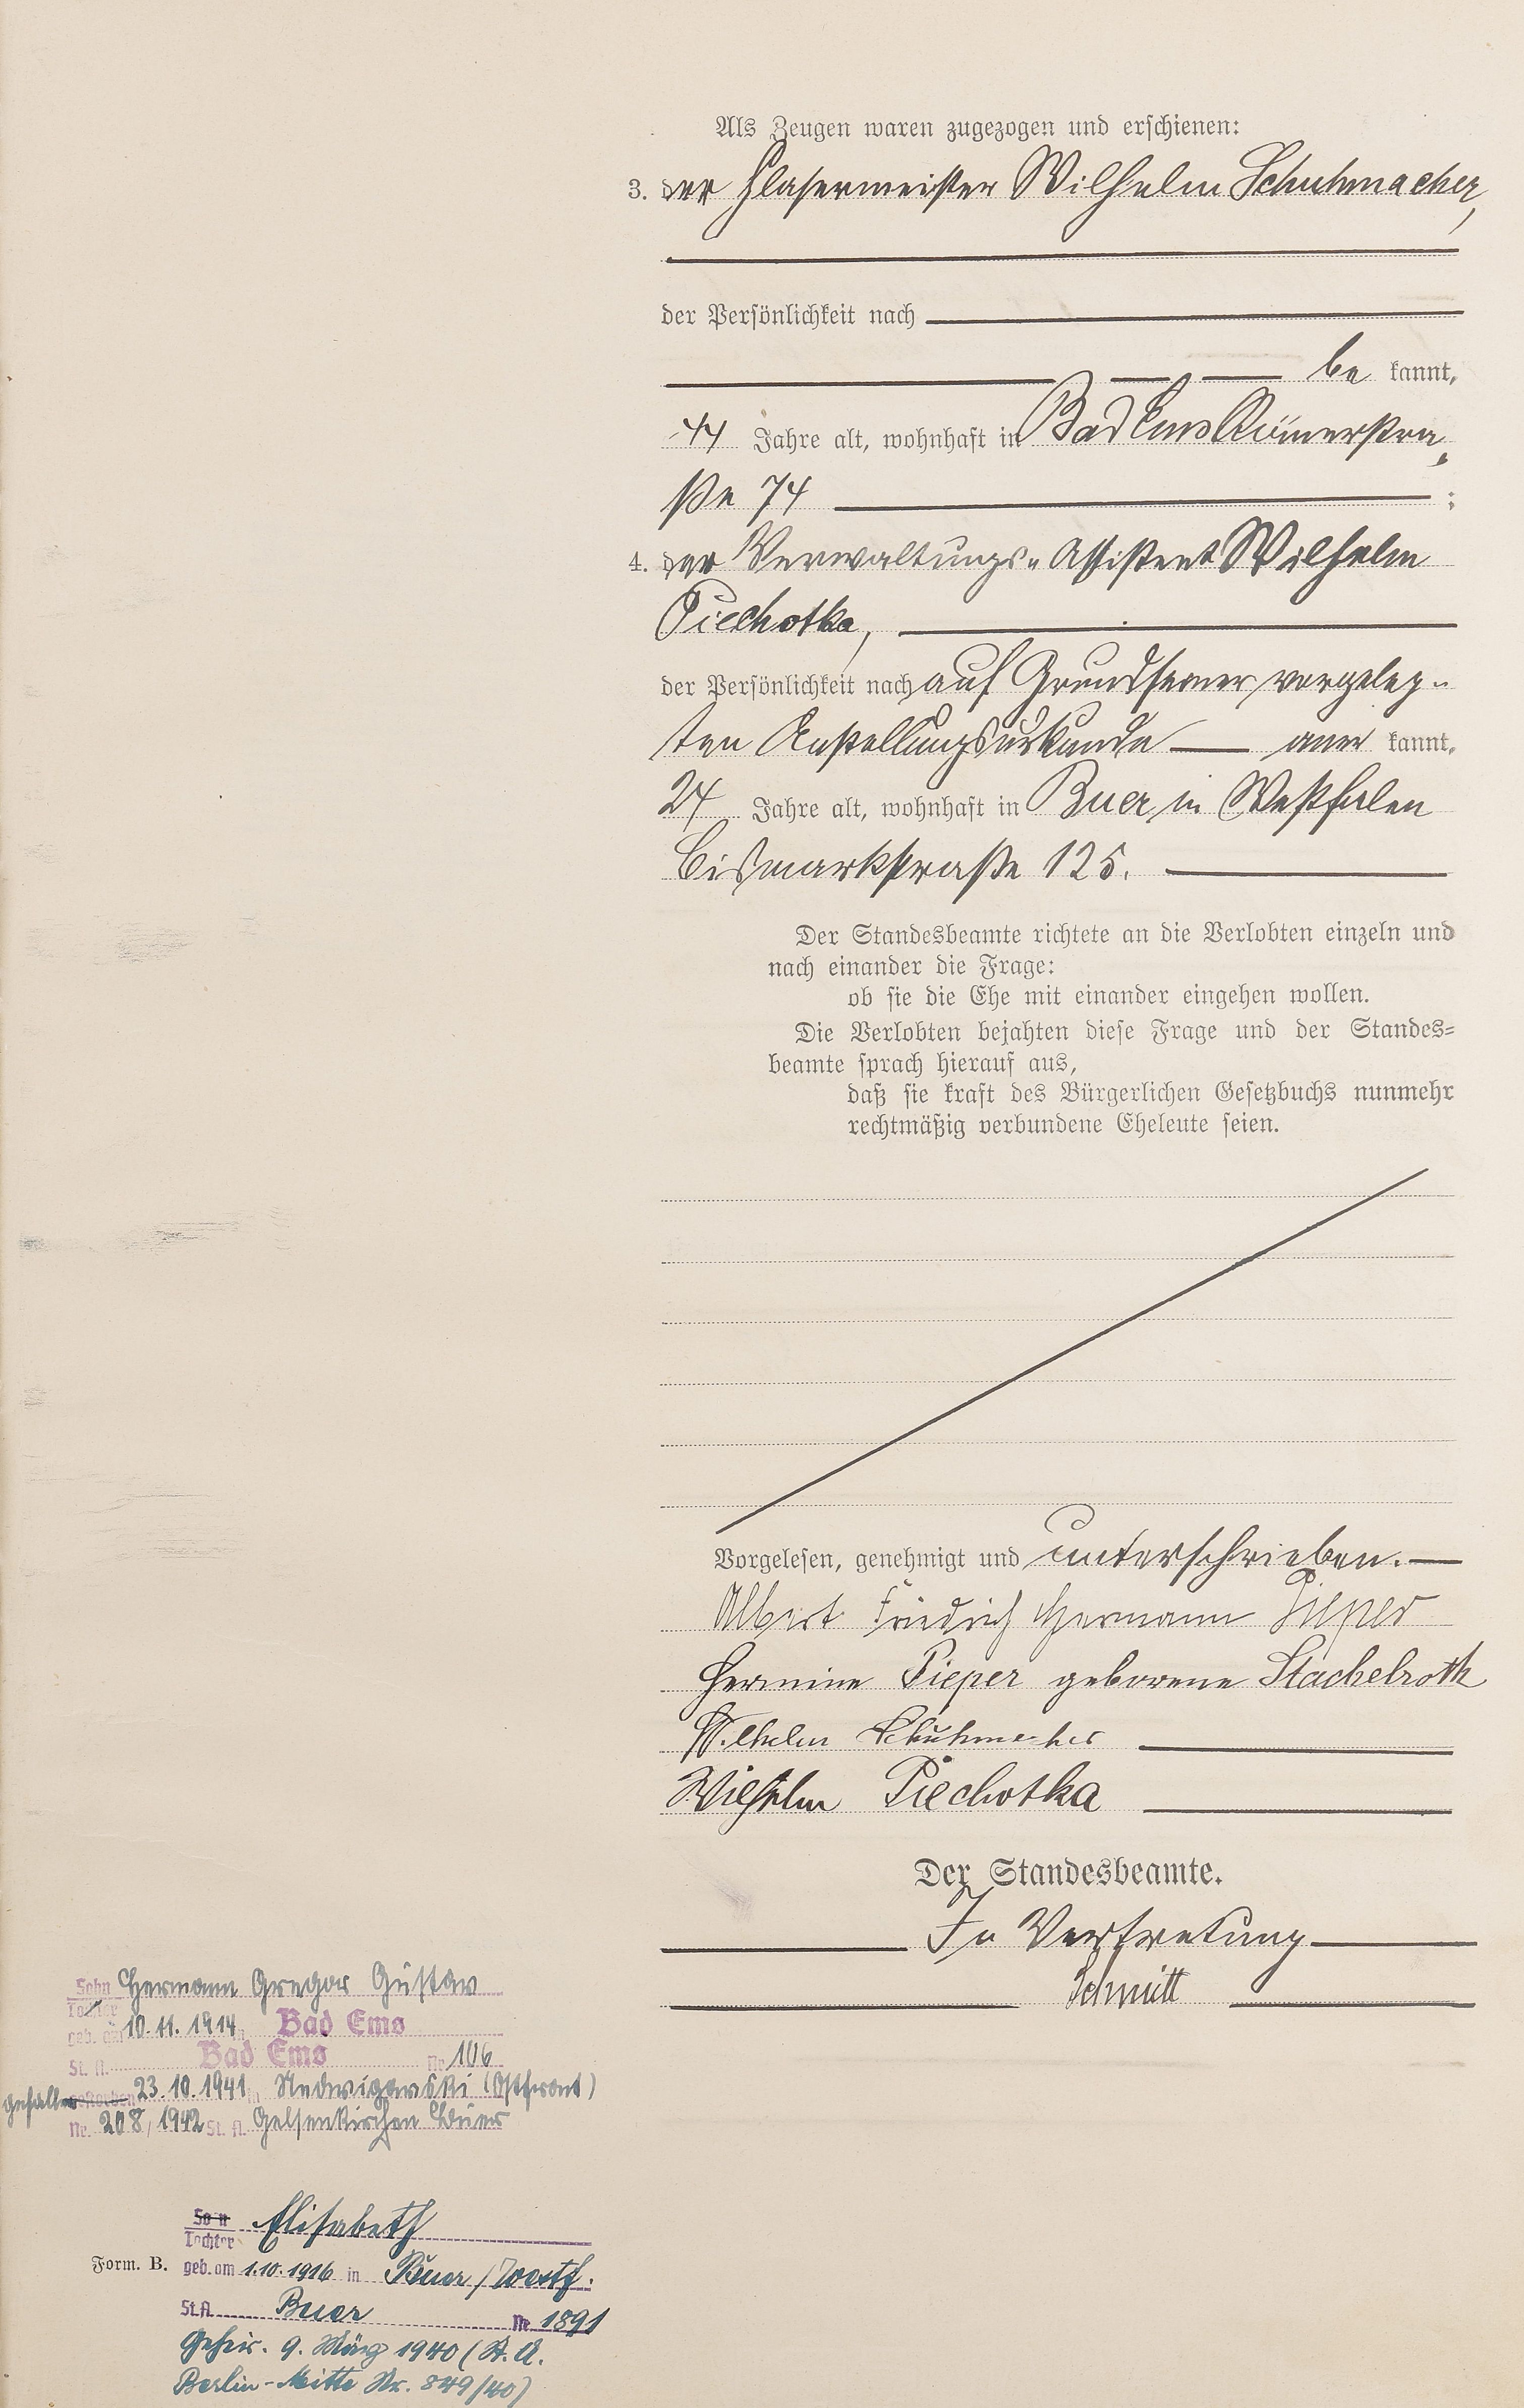 Als Zeugen waren zugezogen und erschienen:
3. der Glasermeister Wilhelm Schuhmacher,
der Persönlichkeit nach
be kannt,
44 Jahre alt, wohnhaft in Bad Ems Römerstra„
ße 74 ;
4. der Verwaltungs„Assistent Wilhelm
Piechotka,
der Persönlichkeit nach auf Grund seiner vorgeleg„
ten Anstellungsurkunde aner kannt,
24 Jahre alt, wohnhaft in Buer in Westfalen
Bismarkstraße 125.
Der Standesbeamte richtete an die Verlobten einzeln und
nach einander die Frage:
ob sie die Ehe mit einander eingehen wollen.
Die Verlobten bejahten diese Frage und der Standes-
beamte sprach hierauf aus,
daß sie kraft des Bürgerlichen Gesetzbuchs nunmehr
rechtmäßig verbundene Eheleute seien.
Vorgelesen, genehmigt und unterschrieben.
Albert Friedrich Hermann Pieper
Hermine Pieper geborene Stachelroth
Wilhelm Schuhmacher
Wilhelm Piechotka
Der Standesbeamte.
In Vertretung
Schmitt
Sohn Hermann Gregor Gustav
Tochter
geb. am 10.11.1914 in Bad Ems
St. A. Bad Ems Nr. 106
gefallen gestorben 23.10.1941 in (Ostfront)
Nr. 208/1942 St. A. Gelsenkirchen Buer
Sohn Elisabeth
Tochter
Form. B. geb. am 1.10.1916 in Buer/Westf.
St.A. Buer Nr. 1891
Geheir. 9. März 1940 (St. A.
Berlin-Mitte Nr. 849/40)